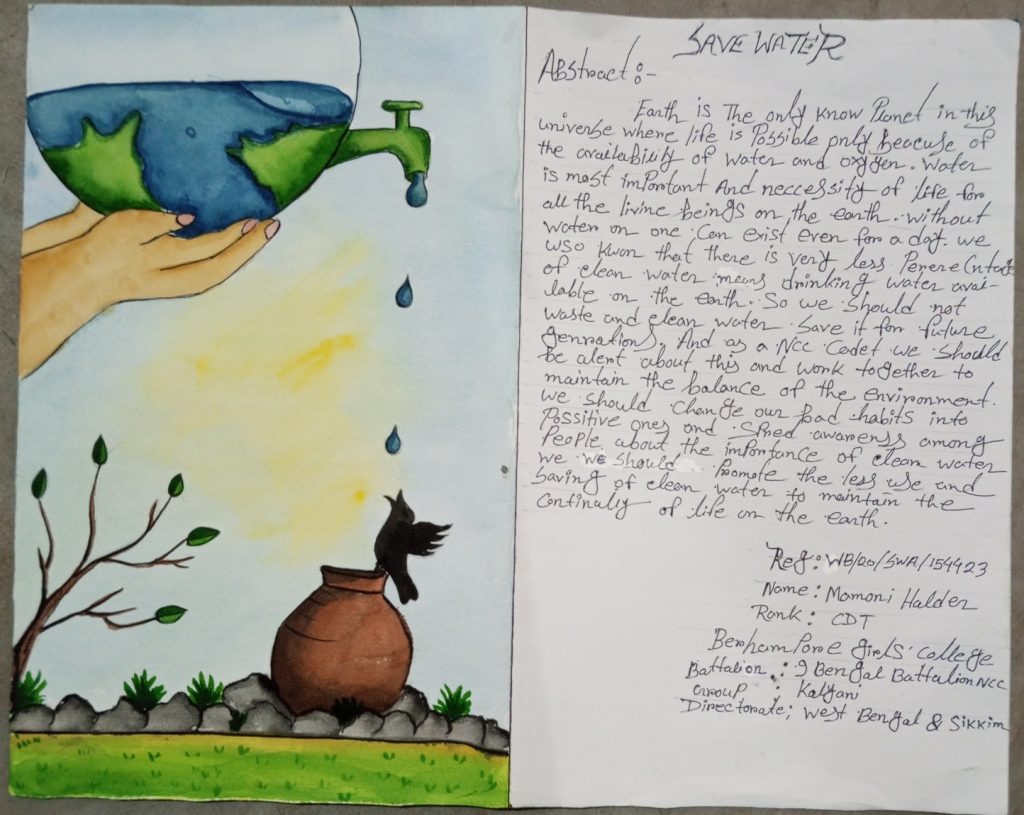 SAVE WATER
Abstract:-
Earth is The only know Planet in this
universe where life is Possible only beacuse of
the availability of water and oxygen. Water
is most important And neccessity of life for
all the livine beings on the earth. without
water on one can exist even for a day. we
kwon that there is very less
of clean water means drinking water avai-
lable on the earth. So we should not
waste and clean water save it for future
genrations. And as a Ncc Codet we should
be alert about this and work together to
maintain the balance of the environment.
we should change our bad habits into
Possitive ones and Spred awarenss among
People about the importance of clean water
we we should Promote the less use and
saving of clean water to maintain the
continally of life on the earth.
Reg: WB/20/SWA/154423
Name: Mamoni Halder
Rank: CDT
BerhamPore girls' college
Battalion : 9 Bengal Battalion NCC
Group : Kalyani
Directorate; West Bengal & Sikkim